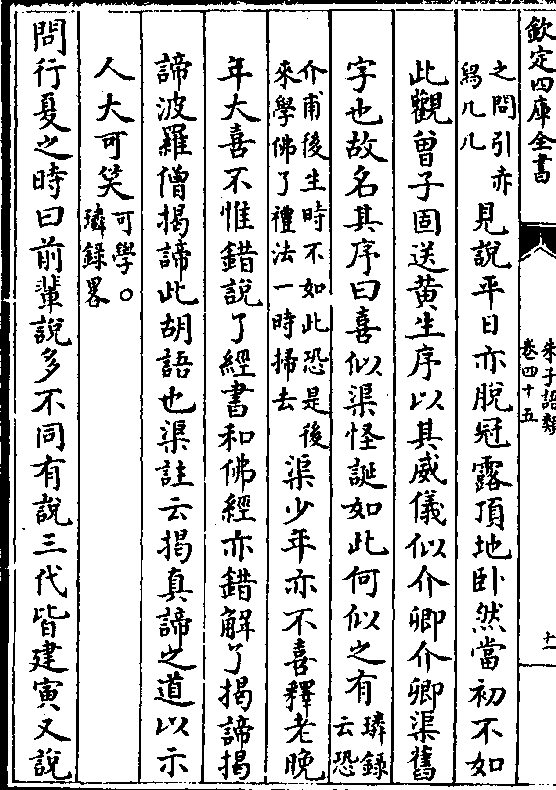 欽定四庫全書
朱子語類
卷四十五
十一
之問引亦
為几几
見說平日亦脫冠露頂地卧然當初不如
此觀曾子固送黄生序以其威儀似介卿介卿渠舊
字也故名其序曰喜似渠怪誕如此何似之有
璘録
云恐
介甫後生時不如此恐是後
來學佛了禮法一時掃去
渠少年亦不喜釋老晚
年大喜不惟錯說了經書和佛經亦錯解了揭諦揭
諦波羅僧揭諦此胡語也渠註云揭真諦之道以示
人大可笑
可學○
璘録畧
問行夏之時曰前輩說多不同有說三代皆建寅又說